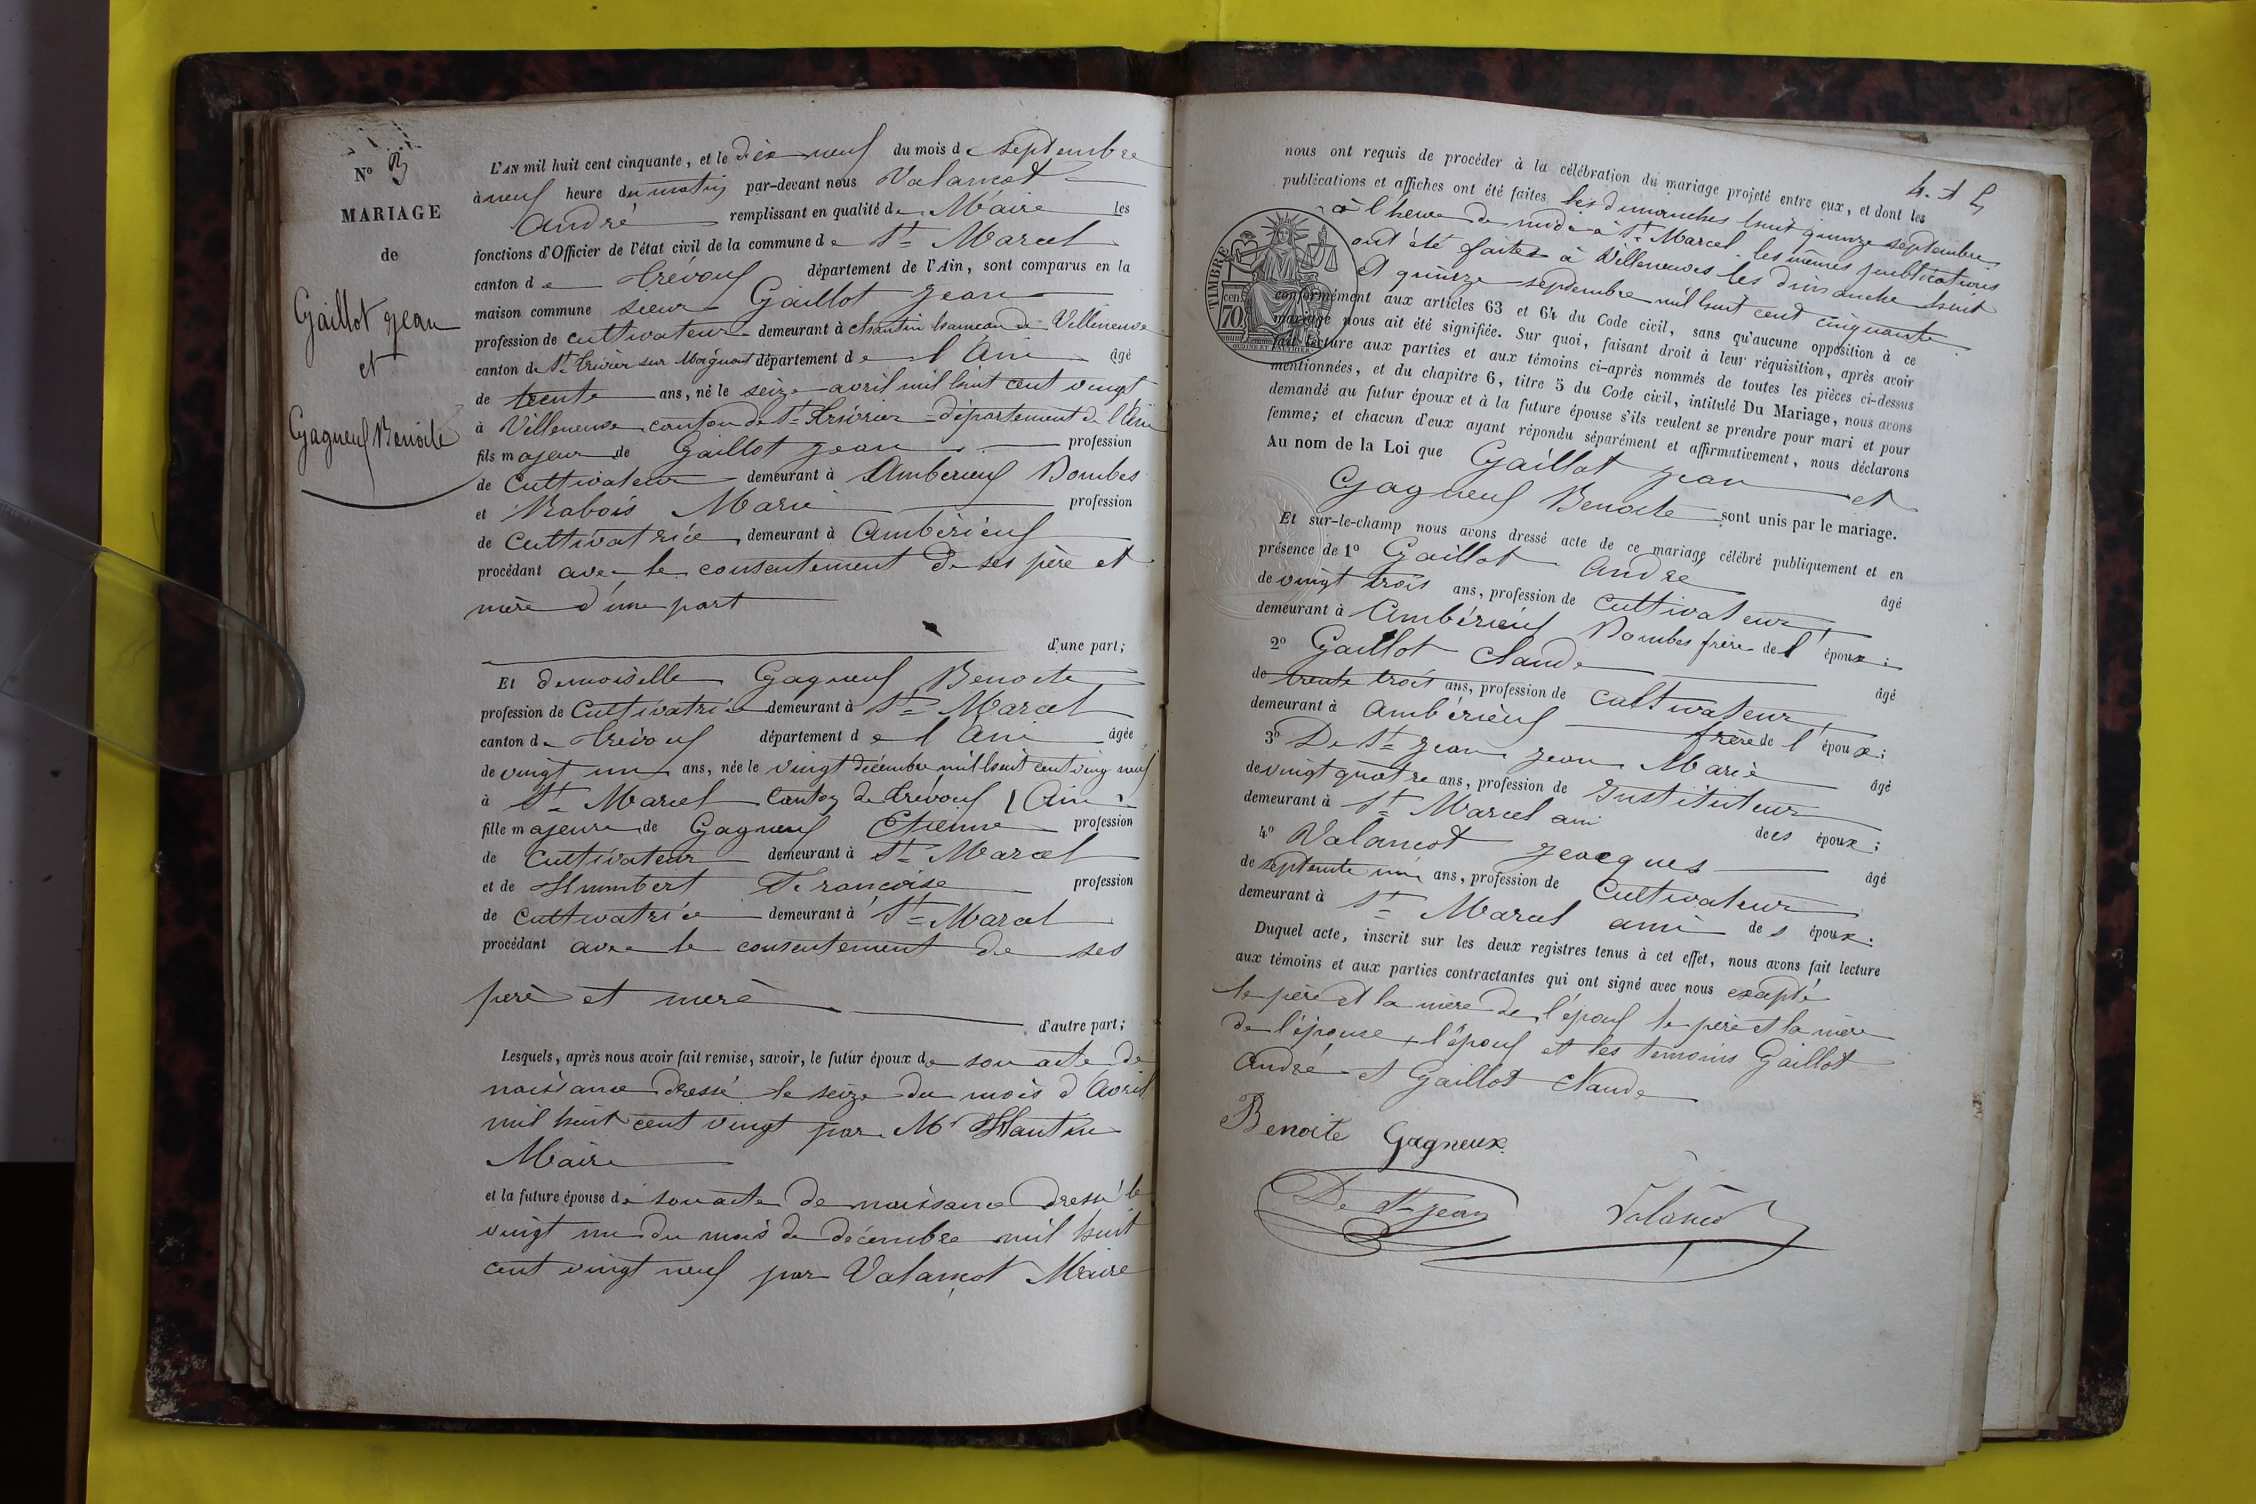 N° 3
MARIAGE
de
Gaillot Jean
et
Gagneux Benoite
L'AN mil huit cent cinquante, et le dix neuf du mois de septembre
à neuf heure du matin par-devant nous Valançot
André remplissant en qualité de Maire les
fonctions d'Officier de l'état civil de la commune de St Marcel
canton de Trévoux département de l'Ain, sont comparus en la
maison commune sieur Gaillot Jean
profession de cultivateur demeurant à chantin hameau de Villeneuve
canton de St Trivier sur Moignant département de l'Ain âgé
de trente ans, né le seize avril mil huit cent vingt
à Villeneuve canton de St Trivier département de l'Ain
fils majeur de Gaillot Jean profession
de Cultivateur demeurant à Amberieux Dombes
et Rabois Marie profession
de Cultivatrice demeurant à Ambérieux
procédant avec le consentement de ses père et
mère d'une part
d'une part;
Et demoiselle Gagneux Benoite
profession de Cultivatrice demeurant à St Marcel
canton de Trévoux département de l'Ain âgée
de vingt un ans, née le vingt décembre mil huit cent ving neuf
à St Marcel canton de Trévoux (Ain)
fille majeure de Gagneux Etienne profession
de Cultivateur demeurant à St Marcel
et de Humbert Francoise profession
de cultivatrice demeurant à St Marcel
procédant avec le consentement de ses
père et mère
d'autre part;
Lesquels, après nous avoir fait remise, savoir, le futur époux de son acte de
naissance dressé le seize du mois d'Avril
mil huit cent vingt par Mr Hantin
Maire
et la future épouse de son acte de naissance dressé le
vingt un du mois de décembre mil huit
cent vingt neuf par Valançot Maire
nous ont requis de procéder à la célébration du mariage projeté entre eux, et dont les
publications et affiches ont été faites les dimanches huit quinze septembre
à l'heure de midi à St Marcel. les mêmes publications
ont été faites à Villeneuves les dimanche huit
et quinze septembre mil huit cent cinquante
TIMBRE
cen. 70
conformément aux articles 63 et 64 du Code civil, sans qu'aucune opposition à ce
mariage nous ait été signifiée. Sur quoi, faisant droit à leur réquisition, après avoir
fait lecture aux parties et aux témoins ci-après nommés de toutes les pièces ci-dessus
mentionnées, et du chapitre 6, titre 5 du Code civil, intitulé Du Mariage, nous avons
demandé au futur époux et à la future épouse s'ils veulent se prendre pour mari et pour
femme; et chacun d'eux ayant répondu séparément et affirmativement, nous déclarons
Au nom de la Loi que Gaillot Jean et
Gagneux Benoite sont unis par le mariage.
Et sur-le-champ nous avons dressé acte de ce mariage célébré publiquement et en
présence de 1° Gaillot André âgé
de vingt trois ans, profession de cultivateur
demeurant à Ambérieux Dombes frère de l'époux;
2° Gaillot Claude âgé
de trente trois ans, profession de cultivateur
demeurant à Ambérieux frère de l'époux;
3° De St Jean Jean Marie âgé
de vingt quatre ans, profession de Instituteur
demeurant à St Marcel ami des époux;
4° Valançot Jeacques âgé
de septente un ans, profession de Cultivateur
demeurant à St Marcel ami des époux.
Duquel acte, inscrit sur les deux registres tenus à cet effet, nous avons fait lecture
aux témoins et aux parties contractantes qui ont signé avec nous exapté
le père et la mère de l'époux le père et la mère
de l'épouse, l'époux et les temoins Gaillot
André et Gaillot Claude
Benoite Gagneux
De St Jean Valançot